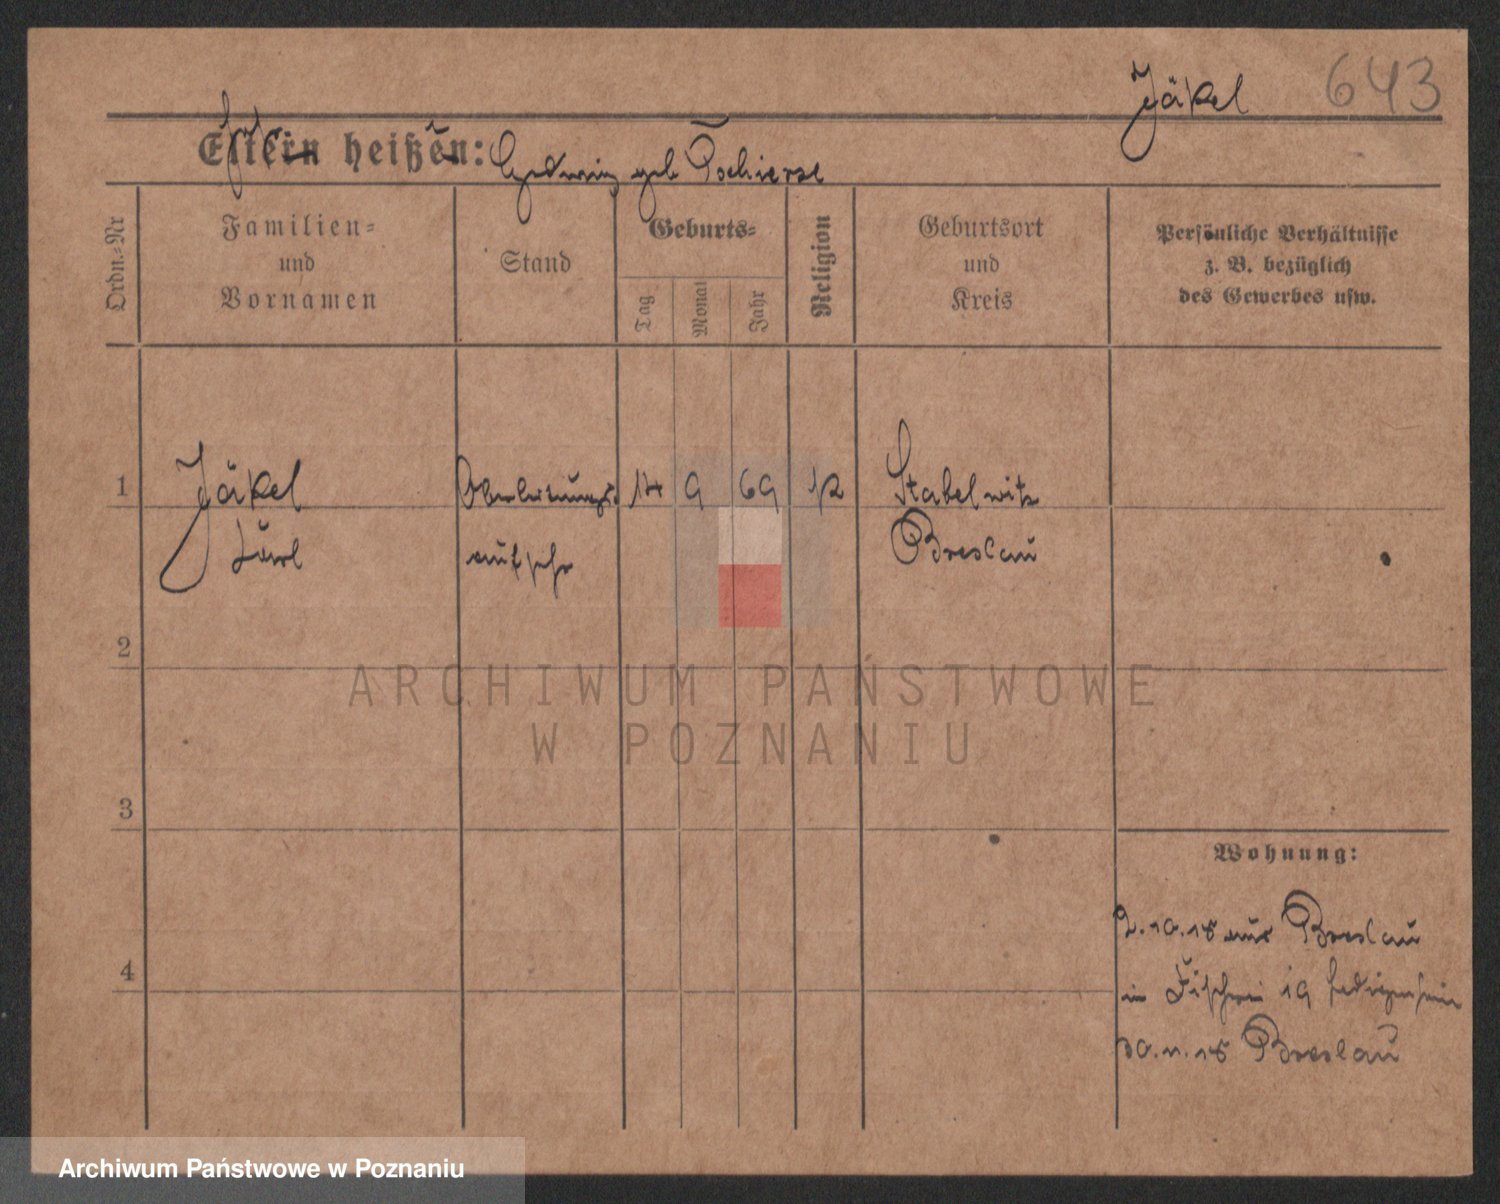 Jäkel 643
Eltern heißen: Hedwig geb Tschierse
Ordn.-Nr
Familien-
und
Vornamen
Stand
Geburts-
Tag
Monat
Jahr
Religion
Geburtsort
und
Kreis
Persönliche Verhältnisse
z. B. bezüglich
des Gewerbes usw.
1 Jäkel 14 9 69 Stabelwitz
Karl Breslau
2
ARCHIWUM PAŃSTWOWE
W POZNANIU
3
Wohnung:
2.10.18 aus Breslau
4
in Fischerei 19
30.11.18 Breslau
Archiwum Państwowe w Poznaniu